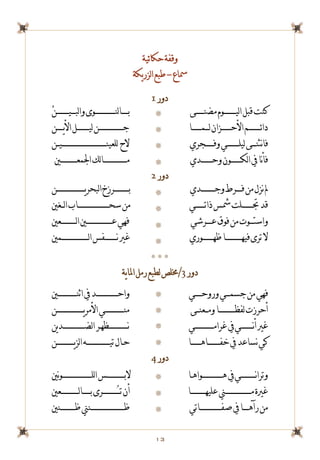 وقفة حكاتية
سماع - طبع الزريكة
دور 1
كنت قبل اليوم مضنى * بالنوى والبين
دائم الأحزان لما * جن ليل الأين
فانثنى ليلي وفجري * لاح للعينين
فأنا في الكون وحدي * مالك الجمعين
دور 2
لم نزل من فرط وجدي * برزخ البحرين
قد تجلت شمس ذاتي * من سحاب الغين
واستوت من فوق عرشي * فهي عين العين
لا ترى فيها ظهوري * غير نفس المين
* * *
دور 3/مخلص لطبع رمل الماية
فهي من جسمي وروحي * واحد في اثنين
أحرزت لفظا ومعنى * منتهى الأمرين
غير أني في غرامي * تظهر الضدين
كي تساعد في خفاها * حال تيه الزين
دور 4
وتراني في هواها * لابس اللونين
غيرة مني عليها * أن ترى بالعين
من رآها في صفاتي * ظنني ظنين
13